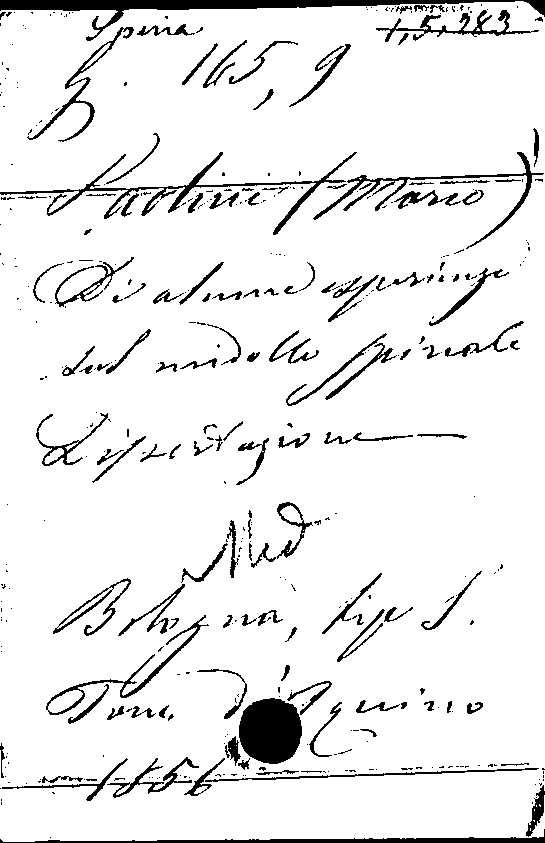 Speria 1,5,283
G. 165,9
Paolini (Marco)
Di alcune esperienze
sul midollo spinale
Dissertazione
Med
Bologna, tip S.
Tom. d'Aquino
1856